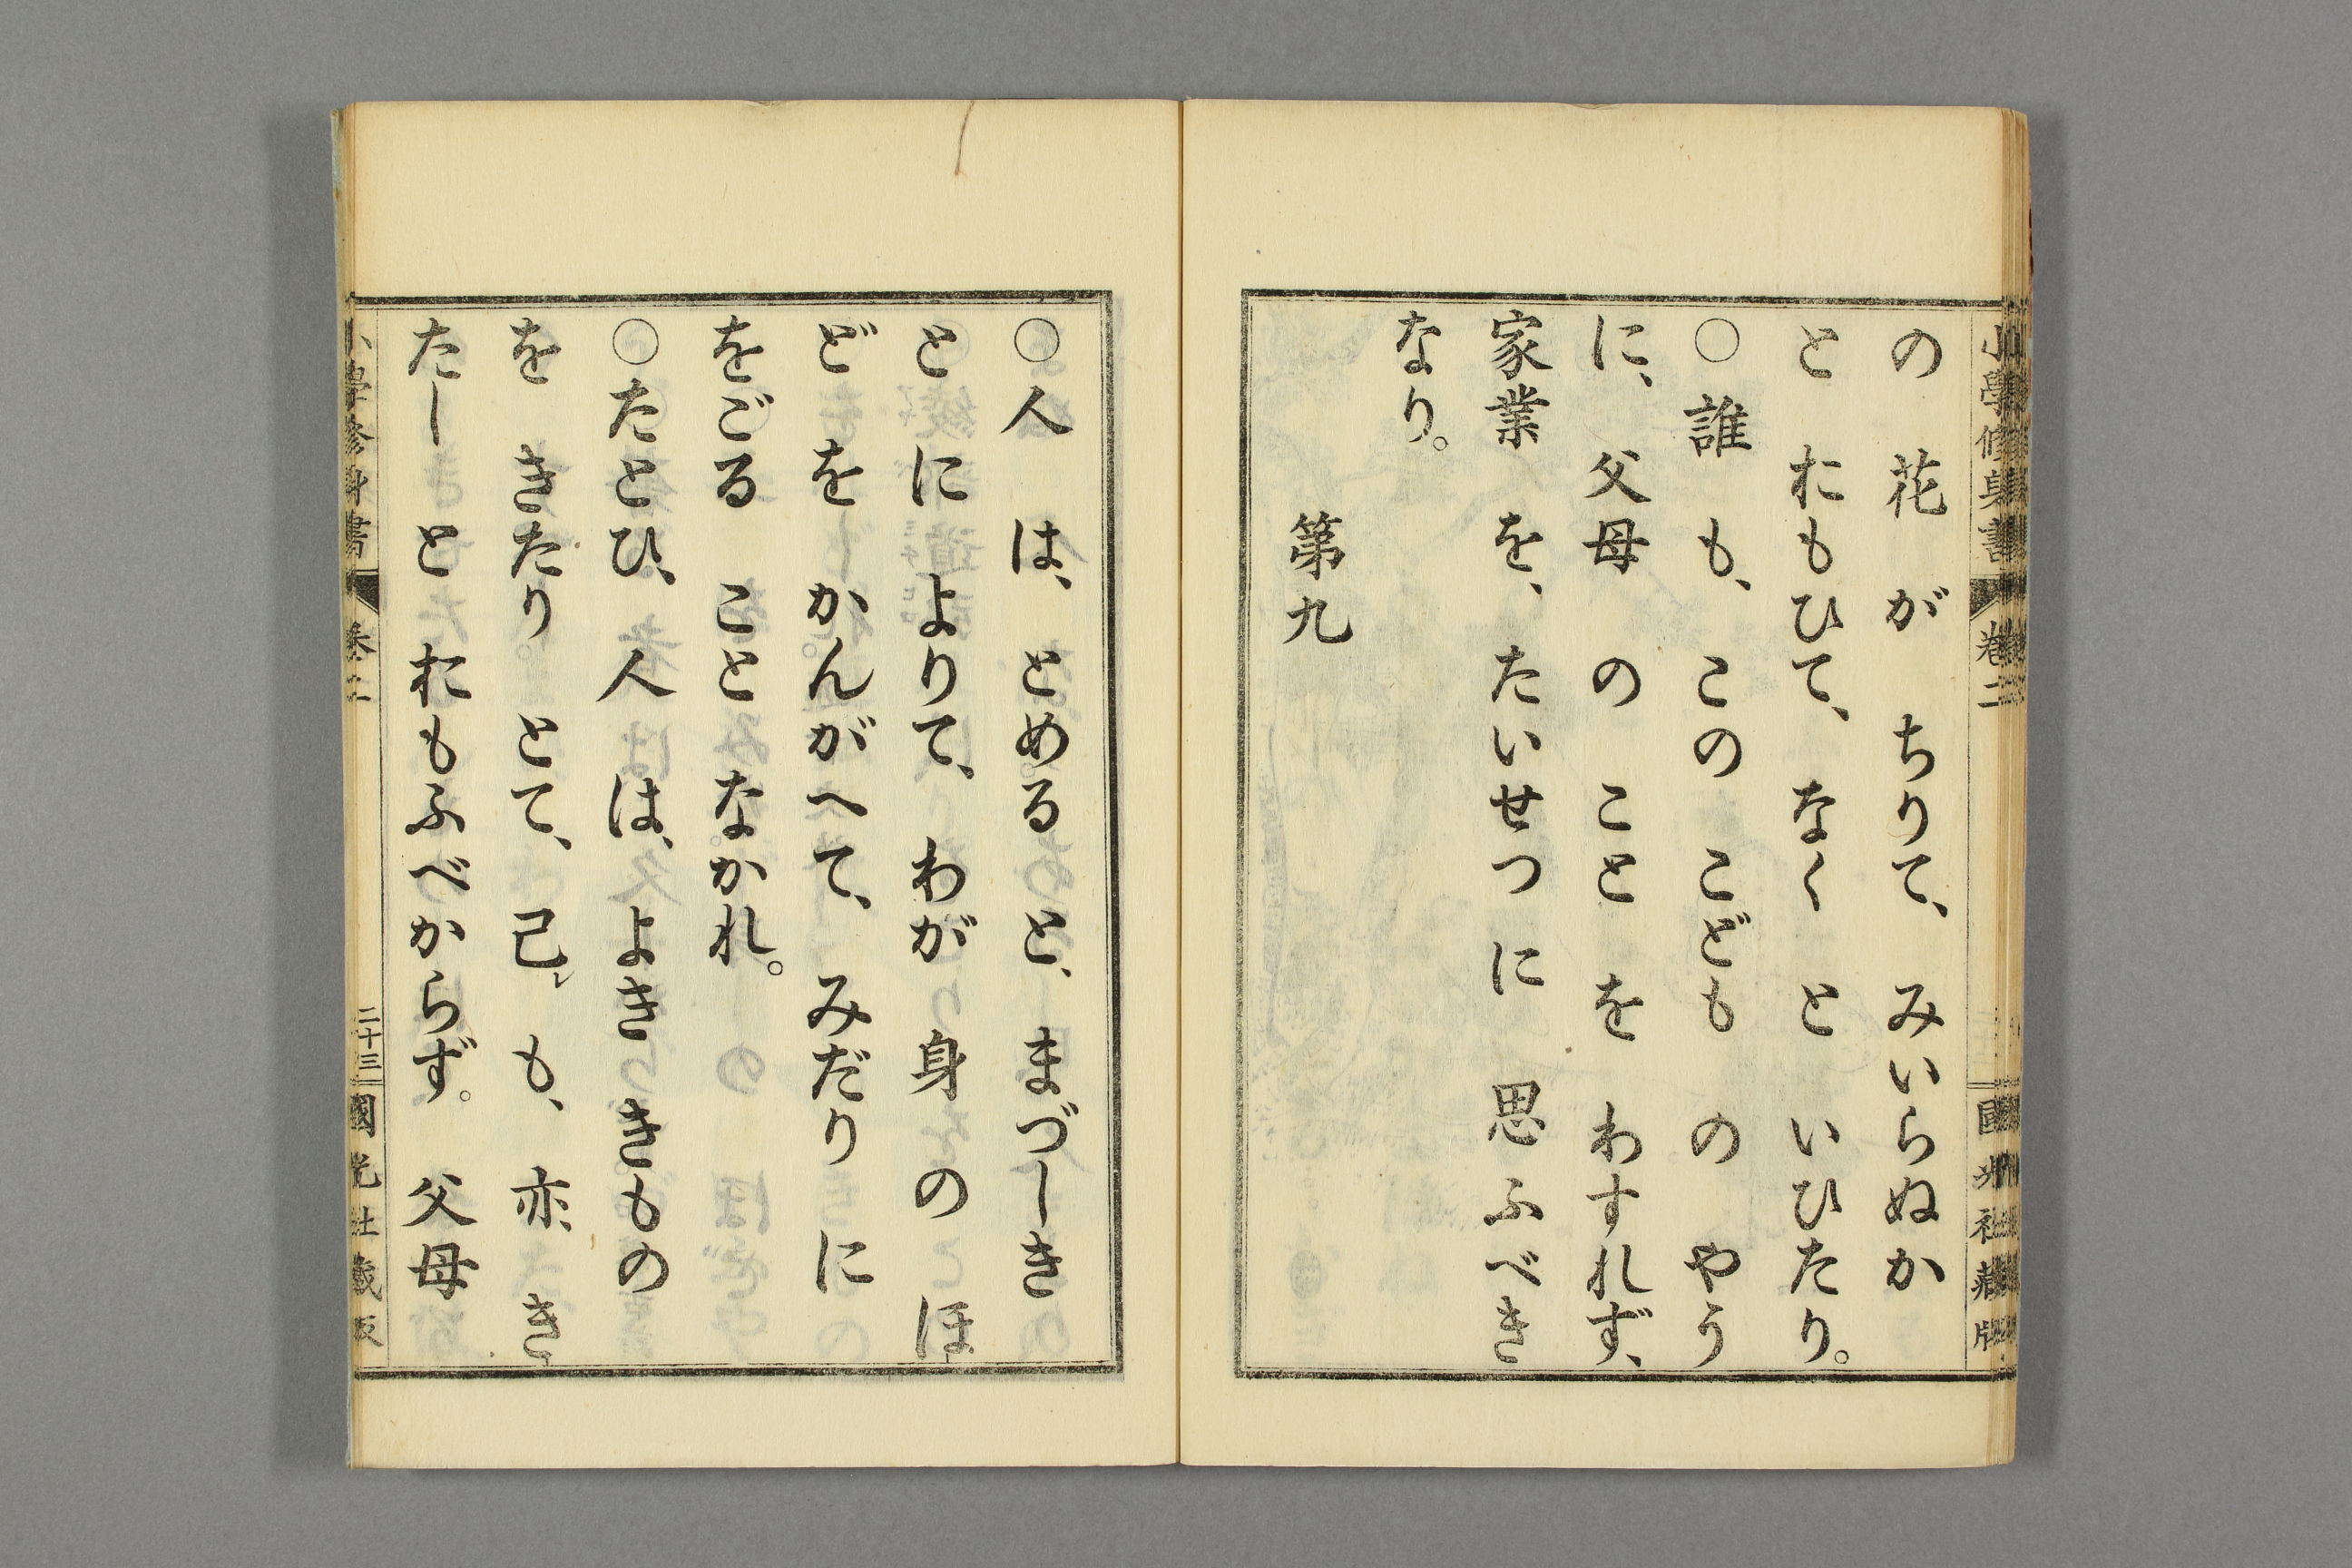 小學修身書 卷二 國光社藏版
の 花 が ちりて、 みいらぬか
と おもひて、 なく と いひたり。
〇誰 も、 この こども の やう
に、 父母 の こと を わすれず、
家業 を、 たいせつ に 思ふべき
なり。
第九
〇人 は、 とめる と、 まづしき
と に よりて、 わが 身 の ほ
ど を かんがへて、 みだり に
をごる こと なかれ。
〇たとひ、 人 は、 よき きもの
を きたり とて、 己 も、 亦 き
たし と おもふべからず。 父母
小學修身書 卷二 二十三 國光社藏版